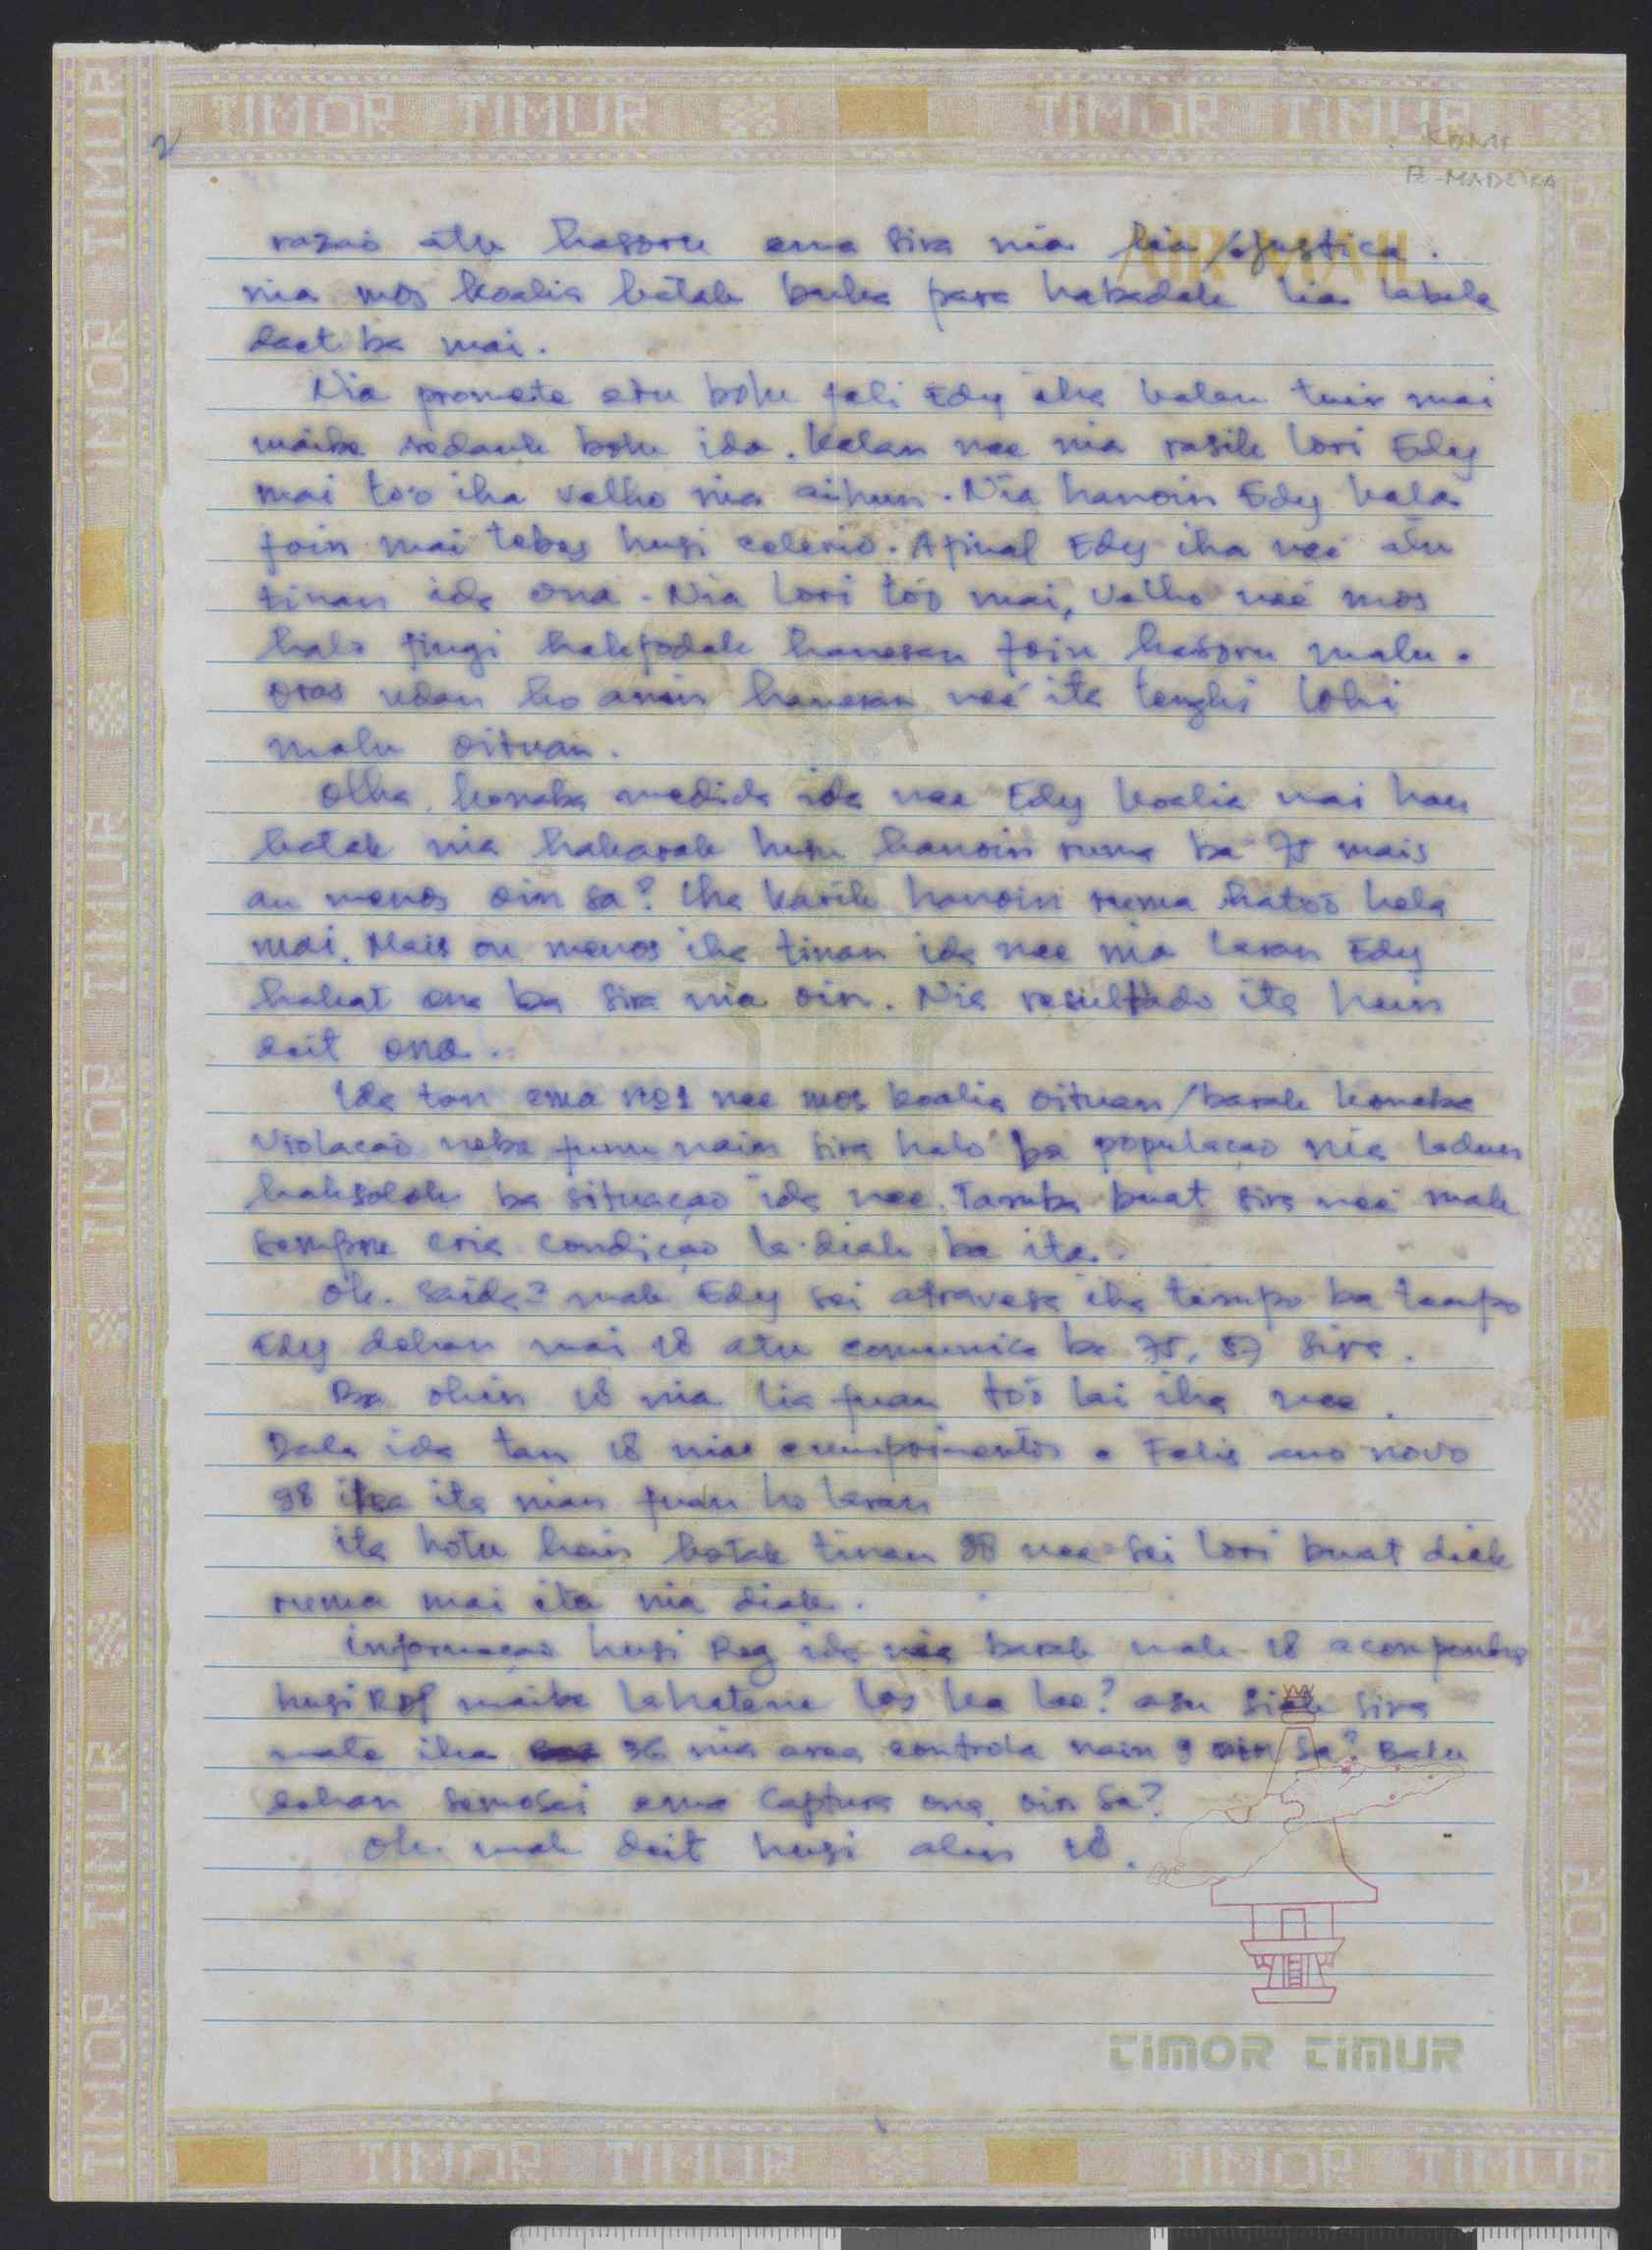 TIMOR TIMUR TIMOR TIMUR
2
KOMI
B-MADEIRA
AIR MAIL
razaõ atu hasoru ema sira nia lia/justica.
nia mos koalia katak buka para habadak lia labele
daet ba mai.
Nia promete atu bolu fali Edy iha kalan tuir mai
maibe sedauk bolu ida. Kalan nee nia rasik lori Edy
mai to'o iha velho nia aihun. Nia hanoin Edy kala
foin mai tebes husi Afinal Edy iha neé atu
tinan ida ona. Nia lori tóo mai, velho neé mos
halo fingi hakfodak hanesan foin hasoru malu.
oras udan ho anin hanesan neé ita tengki lohi
malu oituan.
Olha, konaba medida ida nee Edy koalia mai hau
katak nia hakarak husu hanoin ruma ba 75 mais
au menos oin sa? Iha karik hanoin ruma hatoó hela
mai. Mais ou menos iha tinan ida nee nia laran Edy
hakat ona ba sira nia oin. Nia resultado ita hein
deit ona.
Ida tan ema nº1 nee mos koalia oituan/barak konaba
Violacaõ nebe funu nain sira halo ba populaçao nia ladun
haksolok ba situaçao ida nee. Tamba buat sira neé mak
sempre cria condiçao la-diak ba ita.
Ok. Saida? mak Edy sei atravesa iha tempo ba tempo
Edy dehan mai 18 atu comunica ba 75, 57 sira.
Ba ohin 18 nia lia fuan toó lai iha nee.
Dala ida tan 18 nia cumprimentos e Felis ano novo
98 iha ita nian fuan ho laran
ita hotu hein katak tinan 98 nee sei lori buat diak
ruma mai ita nia diak.
informaçao husi Reg ida nia barak mak 18 acompanha
husi RDF maibe lahatene los ka lae? asu siak sira
mate iha 36 nia area controla nain 9 oin sa? Balu
dehan semosei ema captura ona oin sa?
Ok. mak deit husi alin 18.
TIMOR TIMUR
TIMOR TIMUR TIMOR TIMUR